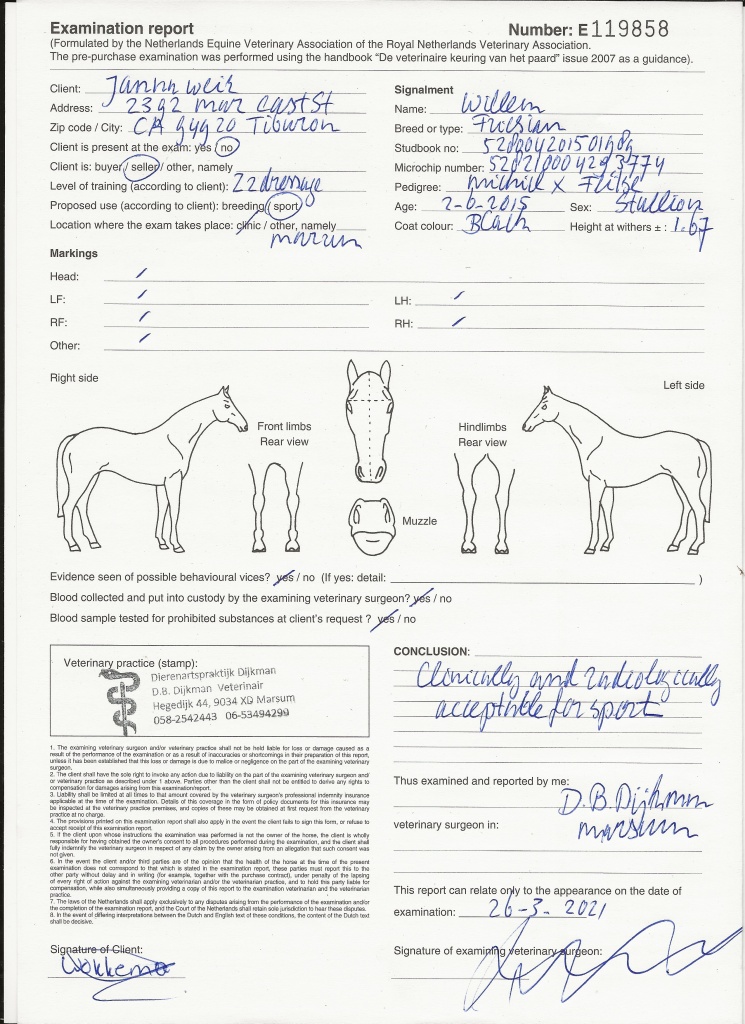 Examination report
Number: E 119858
(Formulated by the Netherlands Equine Veterinary Association of the Royal Netherlands Veterinary Association.
The pre-purchase examination was performed using the handbook "De veterinaire keuring van het paard" issue 2007 as a guidance).
Client: Janna Weir
Address: 2392 Mar East St
Zip code / City: CA 94920 Tiburon
Client is present at the exam: yes / no
Client is: buyer / seller / other, namely
Level of training (according to client): Z2 dressage
Proposed use (according to client): breeding / sport
Location where the exam takes place: clinic / other, namely
Marsum
Signalment
Name: Willem
Breed or type: Friesian
Studbook no:
Microchip number: 528210004293774
Pedigree: x
Age: 2-6-2015 Sex: Stallion
Coat colour: Black Height at withers ± : 1.67
Markings
Head: /
LF: / LH: /
RF: / RH: /
Other: /
Right side
Left side
Front limbs
Rear view
Hindlimbs
Rear view
Muzzle
Evidence seen of possible behavioural vices? yes / no (If yes: detail: )
Blood collected and put into custody by the examining veterinary surgeon? yes / no
Blood sample tested for prohibited substances at client's request ? yes / no
Veterinary practice (stamp):
Dierenartspraktijk Dijkman
D.B. Dijkman Veterinair
Hegedijk 44, 9034 XD Marsum
058-2542443 06-53494299
1. The examining veterinary surgeon and/or veterinary practice shall not be held liable for loss or damage caused as a
result of the performance of the examination or as a result of inaccuracies or shortcomings in their preparation of this report,
unless it has been established that this loss or damage is due to malice or negligence on the part of the examining veterinary
surgeon.
2. The client shall have the sole right to invoke any action due to liability on the part of the examining veterinary surgeon and/
or veterinary practice as described under 1 above. Parties other than the client shall not be entitled to derive any rights to
compensation for damages arising from this examination/report.
3. Liability shall be limited at all times to that amount covered by the veterinary surgeon's professional indemnity insurance
applicable at the time of the examination. Details of this coverage in the form of policy documents for this insurance may
be inspected at the veterinary practice premises, and copies of these may be obtained at first request from the veterinary
practice at no charge.
4. The provisions printed on this examination report shall also apply in the event the client fails to sign this form, or refuse to
accept receipt of this examination report.
5. If the client upon whose instructions the examination was performed is not the owner of the horse, the client is wholly
responsible for having obtained the owner's consent to all procedures performed during the examination, and the client shall
fully indemnify the veterinary surgeon in respect of any claim by the owner arising from an allegation that such consent was
not given.
6. In the event the client and/or third parties are of the opinion that the health of the horse at the time of the present
examination does not correspond to that which is stated in the examination report, these parties must report this to the
other party without delay and in writing (for example, together with the purchase contract), under penalty of the lapsing
of every right of action against the examining veterinarian and/or the veterinarian practice, and to hold this party liable for
compensation, while also simultaneously providing a copy of this report to the examination veterinarian and the veterinarian
practice.
7. The laws of the Netherlands shall apply exclusively to any disputes arising from the performance of the examination and/or
the completion of the examination report, and the Court of the Netherlands shall retain sole jurisdiction to hear these disputes.
8. In the event of differing interpretations between the Dutch and English text of these conditions, the content of the Dutch text
shall be decisive.
CONCLUSION:
Clinically and radiologically
acceptable for sport
Thus examined and reported by me:
D.B. Dijkman
veterinary surgeon in: Marsum
This report can relate only to the appearance on the date of
examination: 26-3-2021
Signature of Client:
Signature of examining veterinary surgeon: